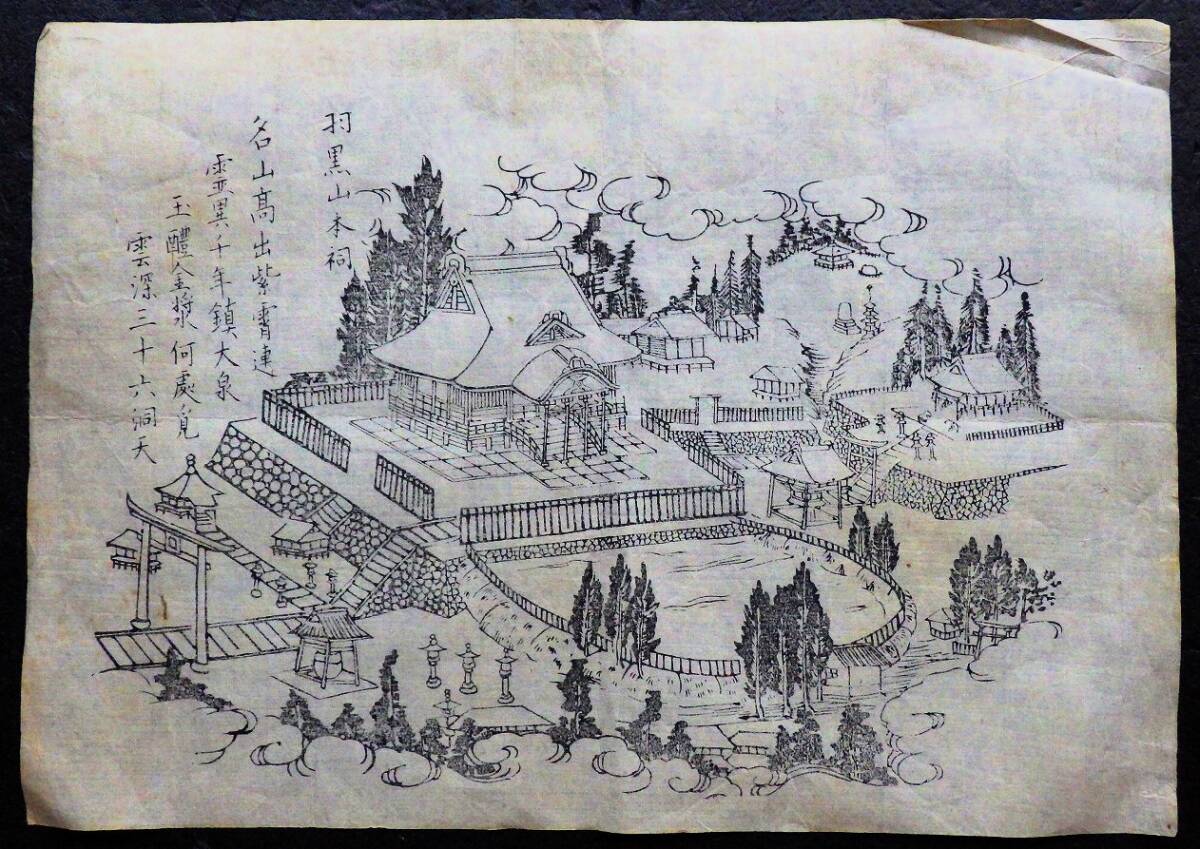 羽黒山本祠
名山髙出紫霄連
靈異千年鎮大泉
玉醴金漿何處覓
雲深三十六洞天